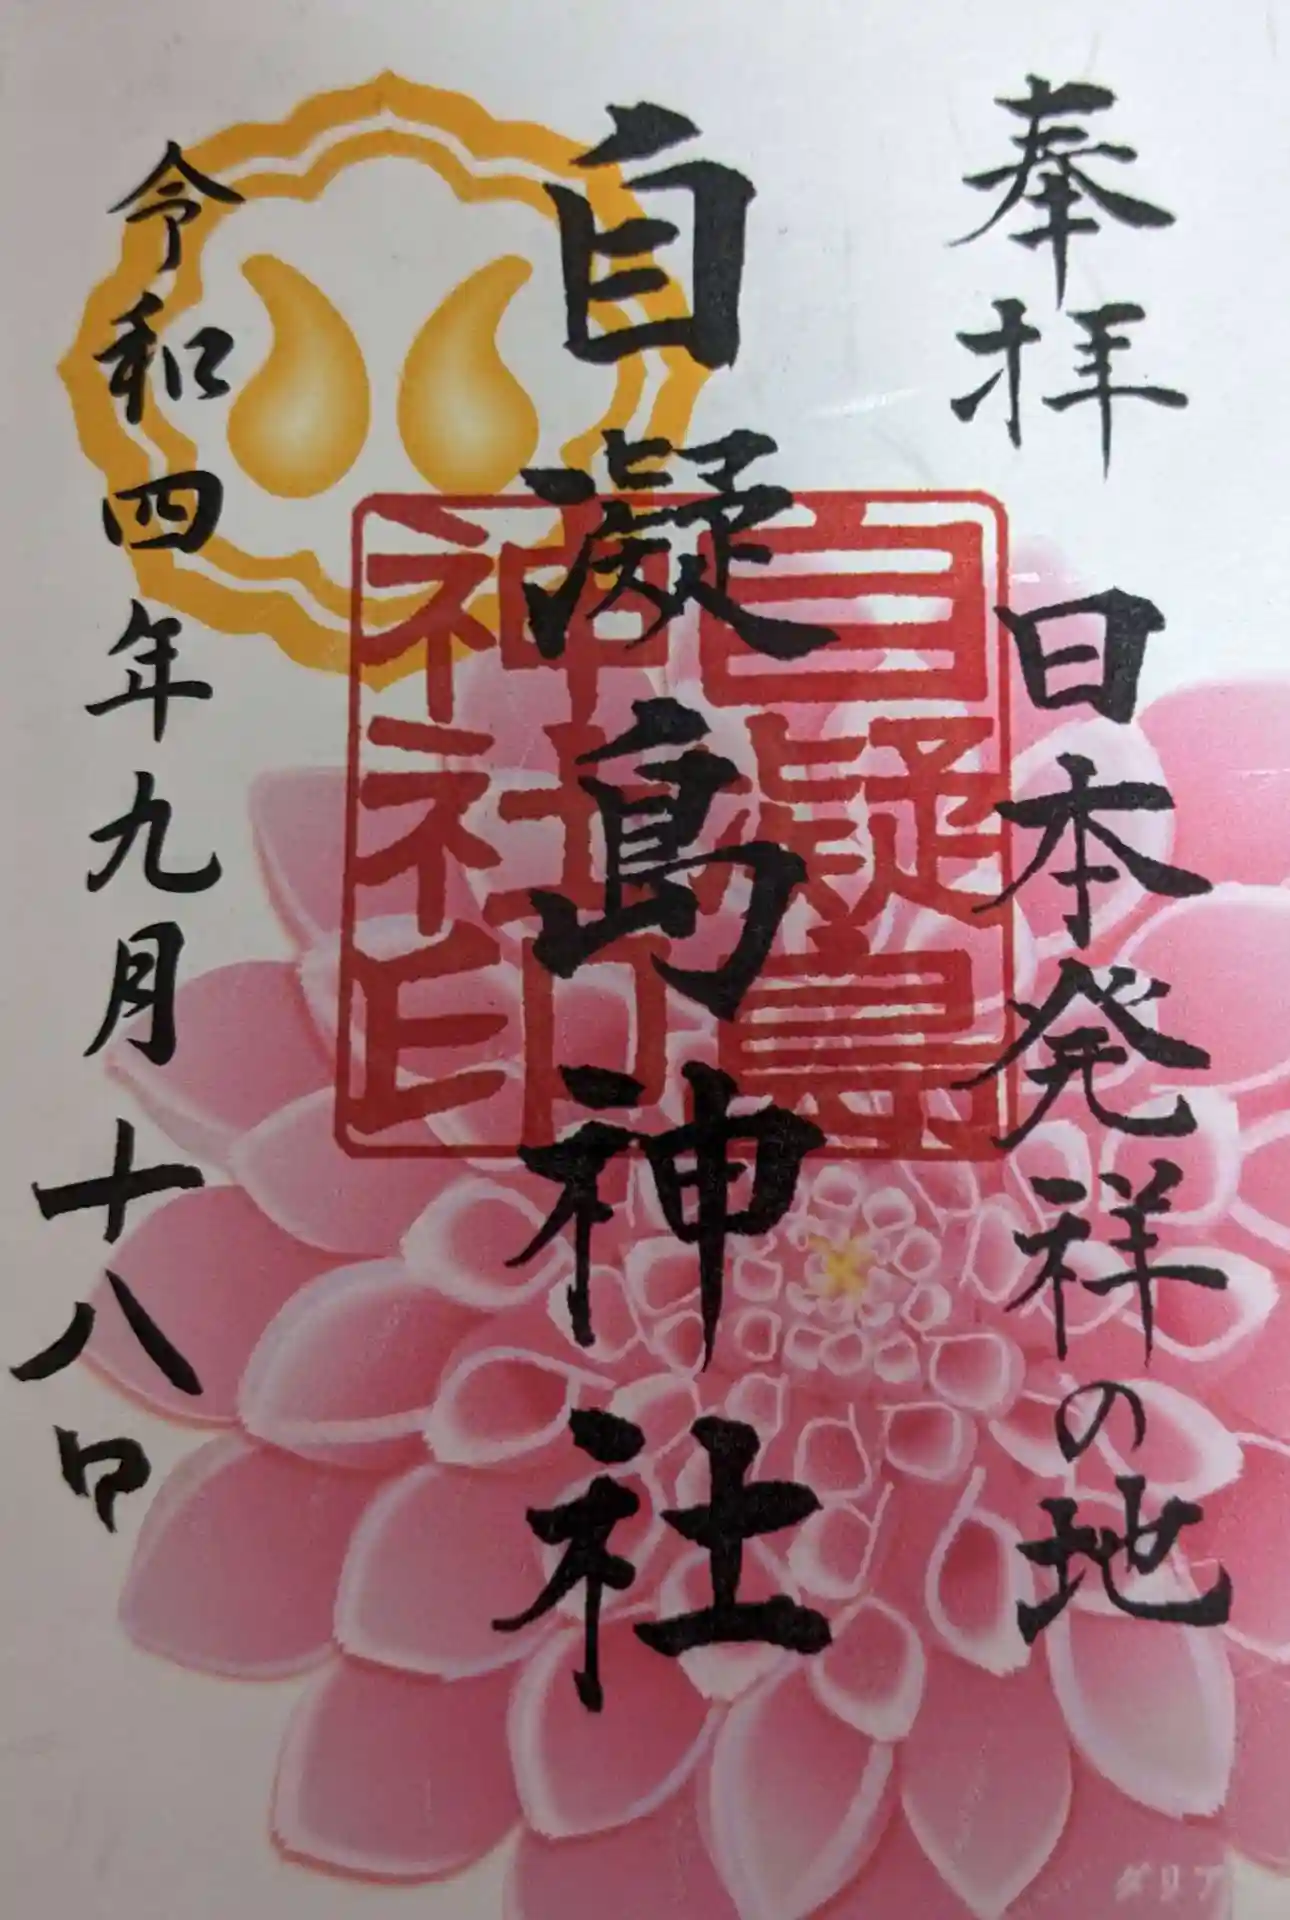 奉拝
日本発祥の地
自凝島神社
自凝島
神社印
令和四年九月十八日
ダリア